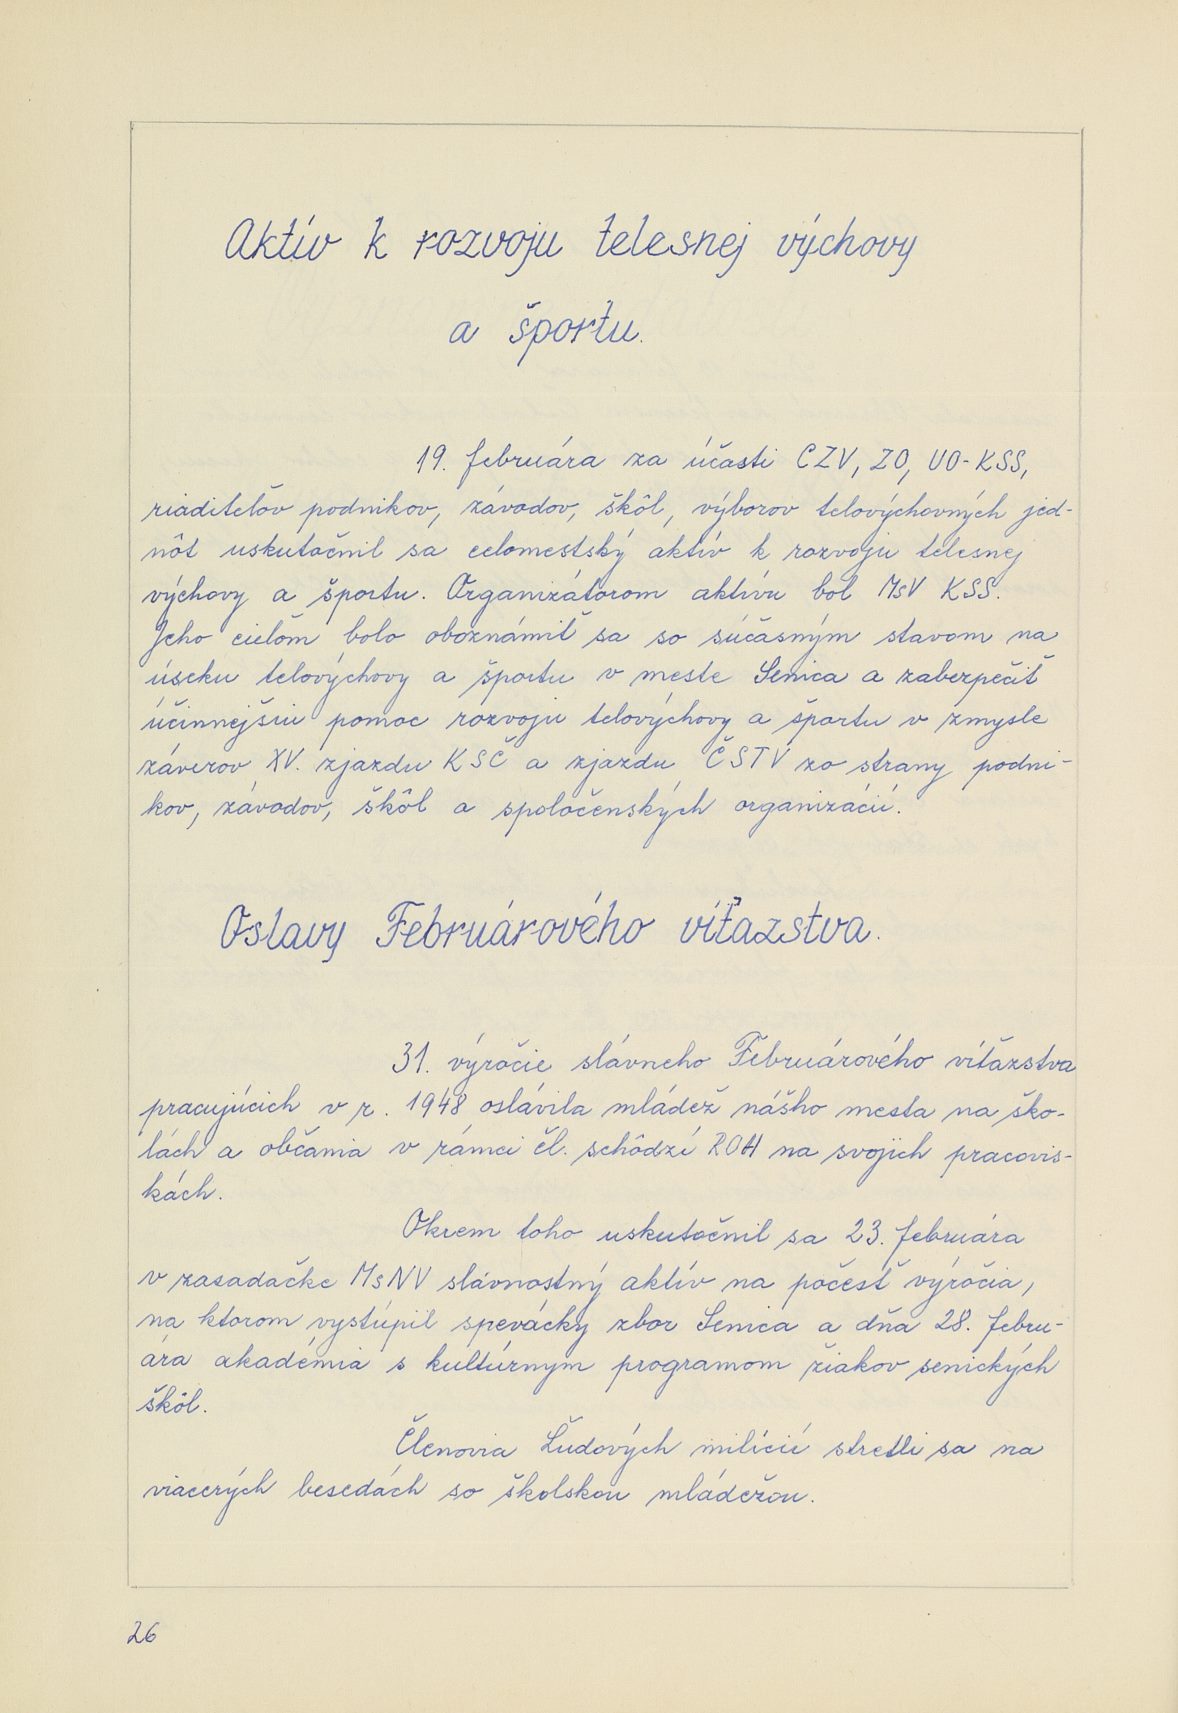 Aktív k rozvoju telesnej výchovy
a športu.
19. februára za účasti CZV, ZO, UO-KSS,
riaditeľov podnikov, závodov, škôl, výborov telovýchovných jed-
nôt uskutočnil sa celomestský aktív k rozvoju telesnej
výchovy a športu. Organizátorom aktívu bol MsV KSS.
Jeho cieľom bolo oboznámiť sa so súčasným stavom na
úseku telovýchovy a športu v meste Senica a zabezpečiť
účinnejšiu pomoc rozvoju telovýchovy a športu v zmysle
záverov XV. zjazdu KSČ a zjazdu ČSTV zo strany podni-
kov, závodov, škôl a spoločenských organizácií.
Oslavy Februárového víťazstva.
31. výročie slávneho Februárového víťazstva
pracujúcich v r. 1948 oslávila mládež nášho mesta na ško-
lách a občania v rámci čl. schôdzí ROH na svojich pracovis-
kách.
Okrem toho uskutočnil sa 23. februára
v zasadačke MsNV slávnostný aktív na počesť výročia,
na ktorom vystúpil spevácky zbor Senica a dňa 28. febru-
ára akadémia s kultúrnym programom žiakov senických
škôl.
Členovia Ľudových milícií stretli sa na
viacerých besedách so školskou mládežou.
26